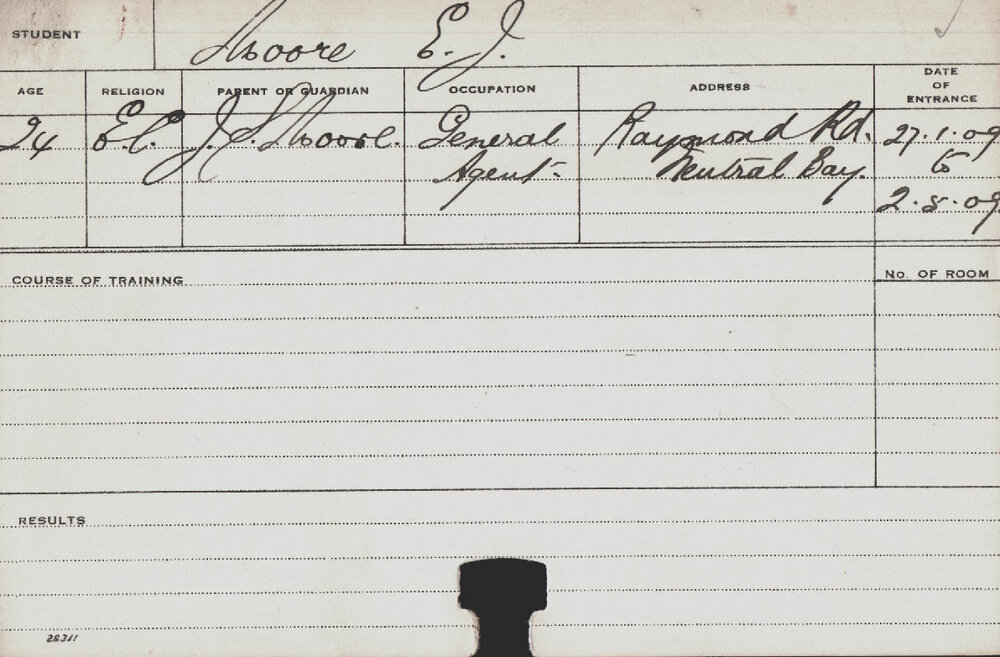 STUDENT
Moore E. J.
AGE
RELIGION
PARENT OR GUARDIAN
OCCUPATION
ADDRESS
DATE
OF
ENTRANCE
24 E.C. Moore. General Raymond Rd. 27.1.09
Agent. Neutral Bay. to
2.8.09
COURSE OF TRAINING
No. OF ROOM
RESULTS
28311